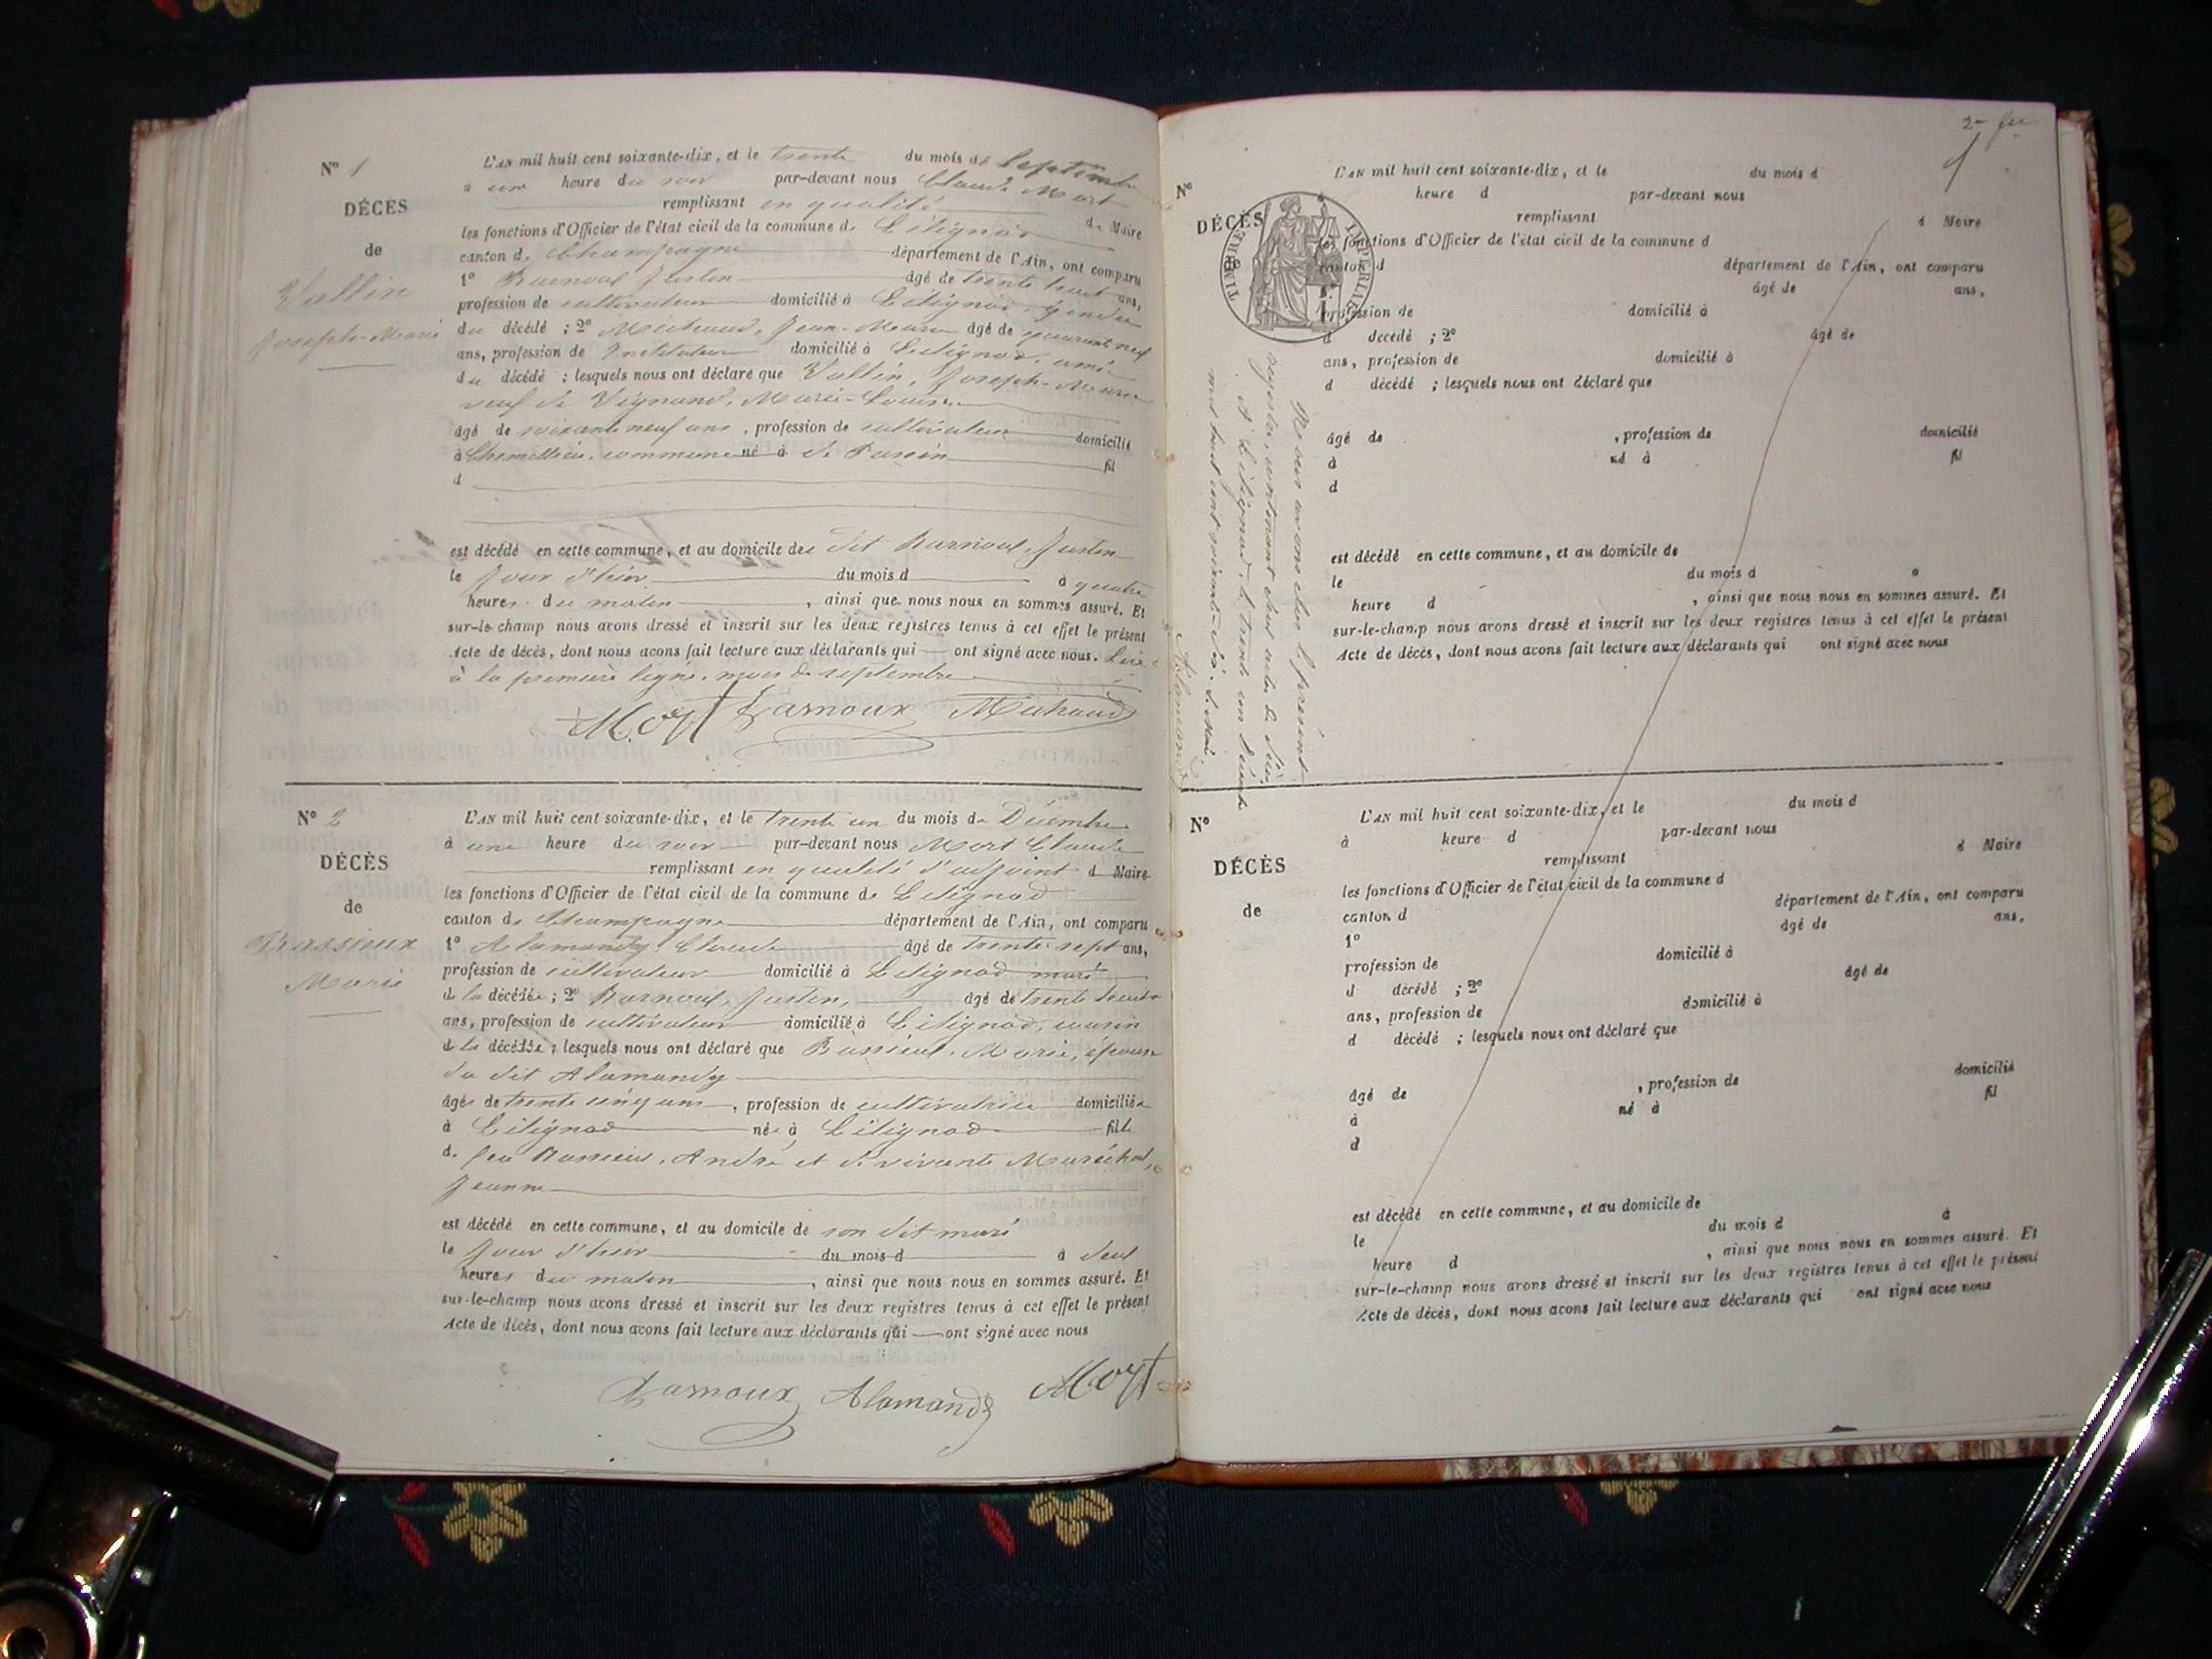 N° 1
DÉCÈS
de
Vallin
Joseph-Marie
L'AN mil huit cent soixante-dix, et le trente du mois de Septembre
à une heure du soir par-devant nous Claude Mort
remplissant en qualité d Maire
les fonctions d'Officier de l'état civil de la commune de Lilignod
canton de Champagne département de l'Ain, ont comparu
1° Barnoux Justin âgé de trente huit ans,
profession de cultivateur domicilié à Lilignod, gendre
du décédé ; 2° Michaud, Jean-Marie âgé de quarante neuf
ans, profession de Instituteur domicilié à Lilignod, ami
du décédé ; lesquels nous ont déclaré que Vallin, Joseph-Marie
veuf de Vignand, Marie-Louise
âgé de soixante neuf ans, profession de cultivateur domicilié
à Chemillieu, commune né à de Parves fil
d
est décédé en cette commune, et au domicile de dit Barnoux, Justin
le jour d'hier du mois d à quatre
heures du matin, ainsi que nous nous en sommes assuré. Et
sur-le-champ nous avons dressé et inscrit sur les deux registres tenus à cet effet le présent
Acte de décès, dont nous avons fait lecture aux déclarants qui ont signé avec nous. Lire
à la première ligne, mois de septembre
Mort Barnoux Michaud
N° 2
DÉCÈS
de
Bassieux
Marie
L'AN mil huit cent soixante-dix, et le trente un du mois de Décembre
à une heure du soir par-devant nous Mort Claude
remplissant en qualité d'adjoint d Maire
les fonctions d'Officier de l'état civil de la commune de Lilignod
canton de Champagne département de l'Ain, ont comparu
1° Alamandy Claude âgé de trente sept ans,
profession de cultivateur domicilié à Lilignod mari
de la décédée ; 2° Barnoux, Justin, âgé de trente huit
ans, profession de cultivateur domicilié à Lilignod, cousin
de la décédée ; lesquels nous ont déclaré que Bassieux, Marie, épouse
du dit Alamandy
âgée de trente cinq ans, profession de cultivatrice domiciliée
à Lilignod née à Lilignod fille
de feu Bassieux, André et de vivante Maréchal,
Jeanne
est décédé en cette commune, et au domicile de son dit mari
le jour d'hier du mois d à deux
heures du matin, ainsi que nous nous en sommes assuré. Et
sur-le-champ nous avons dressé et inscrit sur les deux registres tenus à cet effet le présent
Acte de décès, dont nous avons fait lecture aux déclarants qui ont signé avec nous
Barnoux Alamandy Mort
N°
DÉCÈS
de
TIMBRE IMPERIAL
L'AN mil huit cent soixante-dix, et le du mois d
heure d par-devant nous
remplissant d Maire
les fonctions d'Officier de l'état civil de la commune d
canton d département de l'Ain, ont comparu
1° âgé de ans,
profession de domicilié à
d décédé ; 2° âgé de
ans, profession de domicilié à
d décédé ; lesquels nous ont déclaré que
âgé de , profession de domicilié
à né à fil
d
est décédé en cette commune, et au domicile de
le du mois d à
heure d , ainsi que nous nous en sommes assuré. Et
sur-le-champ nous avons dressé et inscrit sur les deux registres tenus à cet effet le présent
Acte de décès, dont nous avons fait lecture aux déclarants qui ont signé avec nous
Nous avons clos le présent
registre, contenant deux actes de décès
A Lilignod, le trente un Décembre
mil huit cent soixante-dix. Le Maire
Alamandy
N°
DÉCÈS
de
L'AN mil huit cent soixante-dix, et le du mois d
à heure d par-devant nous
remplissant d Maire
les fonctions d'Officier de l'état civil de la commune d
canton d département de l'Ain, ont comparu
1° âgé de ans,
profession de domicilié à
d décédé ; 2° âgé de
ans, profession de domicilié à
d décédé ; lesquels nous ont déclaré que
âgé de , profession de domicilié
à né à fil
d
est décédé en cette commune, et au domicile de
le du mois d à
heure d , ainsi que nous nous en sommes assuré. Et
sur-le-champ nous avons dressé et inscrit sur les deux registres tenus à cet effet le présent
Acte de décès, dont nous avons fait lecture aux déclarants qui ont signé avec nous